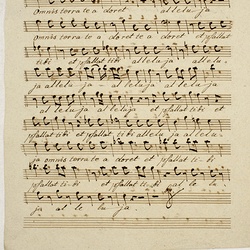 omnis terra te a doret alleluja
omnis terra te a doret a doret et psallat
tibi et psallat tibi alleluja alelu-
ja alleluja ja alleluja ja allelu-
alleluja alleluja et psallat tibi et
psallat et psallat tibi alleluja allelu
ja omnis terra te a doret et psallat ti-bi
psallat ti-bi et psallat ti-bi al le lu-
ja al le lu-ja.